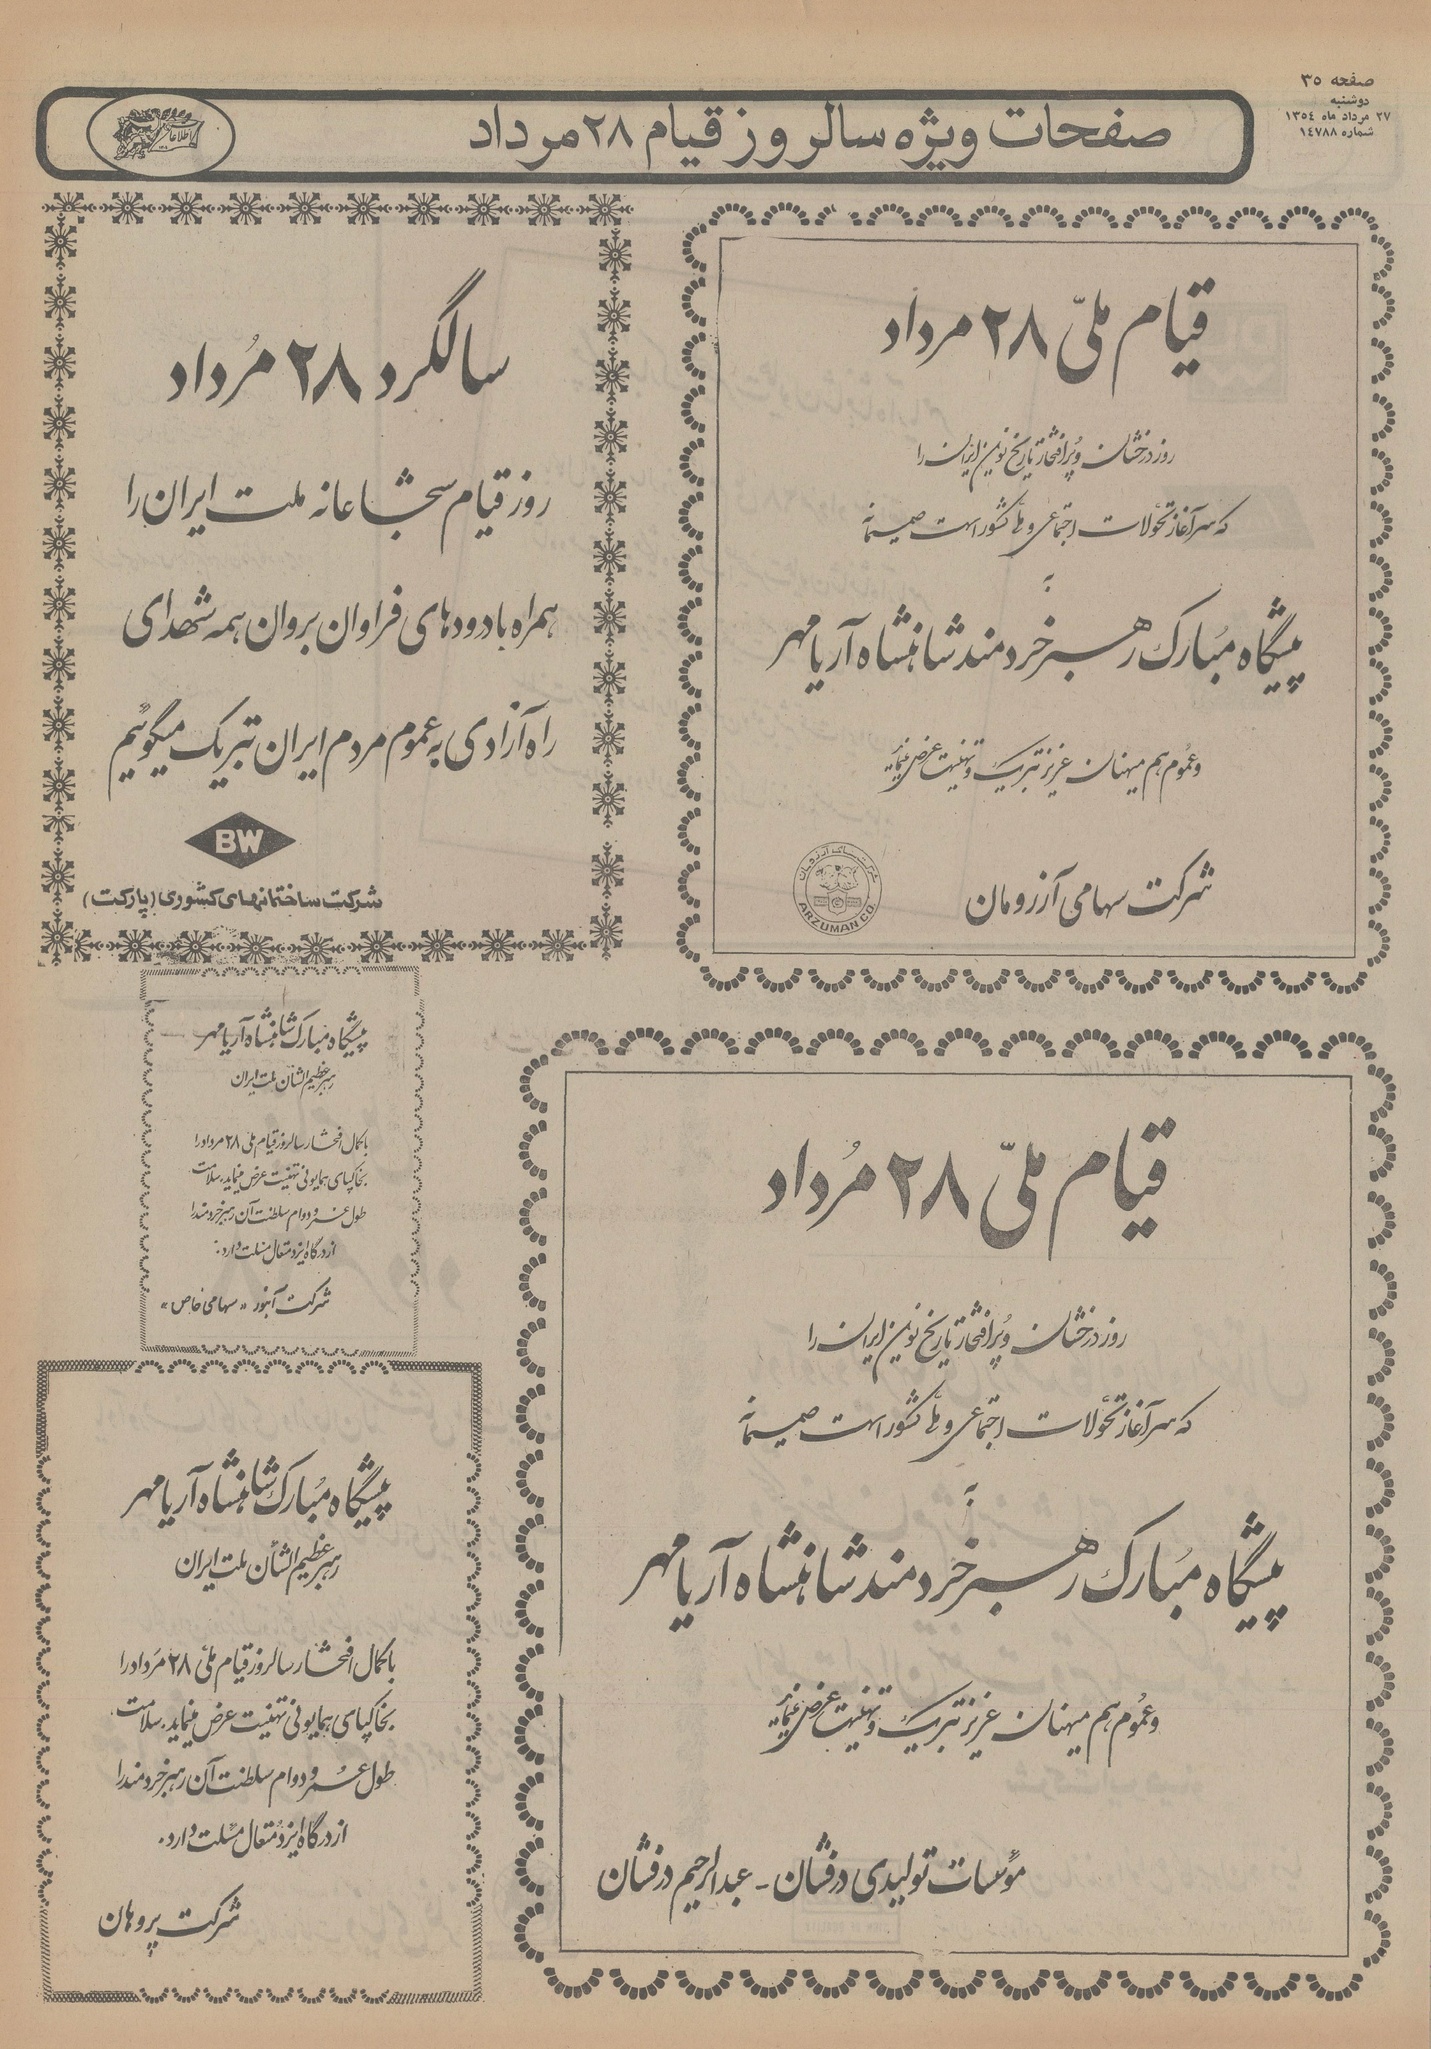 صفحه ۳۵
دوشنبه
۲۷ مرداد ماه ۱۳۵۴
شماره ۱۴۷۸۸
صفحات ویژه سالروز قیام ۲۸ مرداد
اطلاعات
قیام ملّی ۲۸ مرداد
روز درخشان و پُر افتخار تاریخ نوین ایران را
که سرآغاز تحوّلات اجتماعی و ملّی کشور است صمیمانه
به
پیشگاه مبارک رهبر خردمند شاهنشاه آریامهر
و عموم هم میهنان عزیز تبریک و تهنیت عرض مینماید
شرکت سهامی آرزومان
شرکت سهامی آرزومان
ARZUMAN CO.
سالگرد ۲۸ مُرداد
روز قیام شجاعانه ملت ایران را
همراه با درودهای فراوان بروان همه شهدای
راه آزادی به عموم مردم ایران تبریک میگوئیم
BW
شرکت ساختمانهای کشوری (پارکت)
پیشگاه مبارک شاهنشاه آریامهر
رهبر عظیم الشأن ملت ایران
با کمال افتخار سالروز قیام ملی ۲۸ مرداد را
بخاکپای همایونی تهنیت عرض مینماید. سلامت
طول عمر و دوام سلطنت آن رهبر خردمند را
از درگاه ایزد متعال مسئلت دارد.
شرکت آبنور «سهامی خاص»
قیام ملّی ۲۸ مُرداد
روز درخشان و پُر افتخار تاریخ نوین ایران را
که سرآغاز تحوّلات اجتماعی و ملّی کشور است صمیمانه
به
پیشگاه مُبارک رهبر خردمند شاهنشاه آریامهر
و عموم هم میهنان عزیز تبریک و تهنیت عرض مینماید
مؤسسات تولیدی درفشان - عبدالرحیم درفشان
پیشگاه مُبارک شاهنشاه آریامهر
رهبر عظیم الشأن ملت ایران
با کمال افتخار سالروز قیام ملی ۲۸ مُرداد را
بخاکپای همایونی تهنیت عرض مینماید. سلامت
طول عمر و دوام سلطنت آن رهبر خردمند را
از درگاه ایزد مُتعال مسئلت دارد.
شرکت پروهان